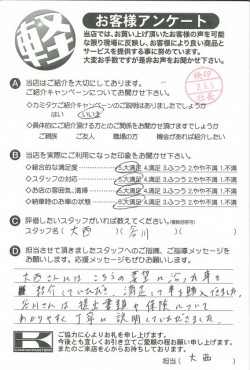 軽
お客様アンケート
当店では、お買い上げ頂いたお客様の声を可能な
限り現場に反映し、お客様により良い商品と
サービスを提供する事に努めています。
大変お手数ですが是非お声をお聞かせ下さい。
A 当店はご紹介を大切にしております。
ご紹介キャンペーンについてお聞かせ下さい。
◇カミタケご紹介キャンペーンのご説明はありましたでしょうか
はい いいえ
◇具体的にご紹介頂ける方とのご関係をお聞かせ頂けますでしょうか
ご親族 ご友人 職場の方 機会があれば紹介したい
B 当店を実際にご利用になった印象をお聞かせ下さい。
◇総合的な満足度 5.大満足 4.満足 3.ふつう 2.やや不満 1.不満
◇スタッフの対応 5.大満足 4.満足 3.ふつう 2.やや不満 1.不満
◇お店の雰囲気、清掃 5.大満足 4.満足 3.ふつう 2.やや不満 1.不満
◇納車時のお車の状態 5.大満足 4.満足 3.ふつう 2.やや不満 1.不満
C 評価したいスタッフがいれば教えてください。(複数回答可)
スタッフ名( 大西 )( 谷川 )( )
D 担当させて頂きましたスタッフへのご指摘、ご指導メッセージを
お願いします。応援メッセージもぜひお願いします。
大西さんにはこちらの要望に沿った車を
紹介していただき、満足して車を購入できました。
谷川さんは提出書類や保険について
わかりやすく丁寧に説明していただきました。
K
ご協力に心よりお礼を申し上げます。
今後とも宜しくお引き立てご愛顧の程お願い申し上げます。
またのご来店を心からお待ちしております。
担当( 大西 )